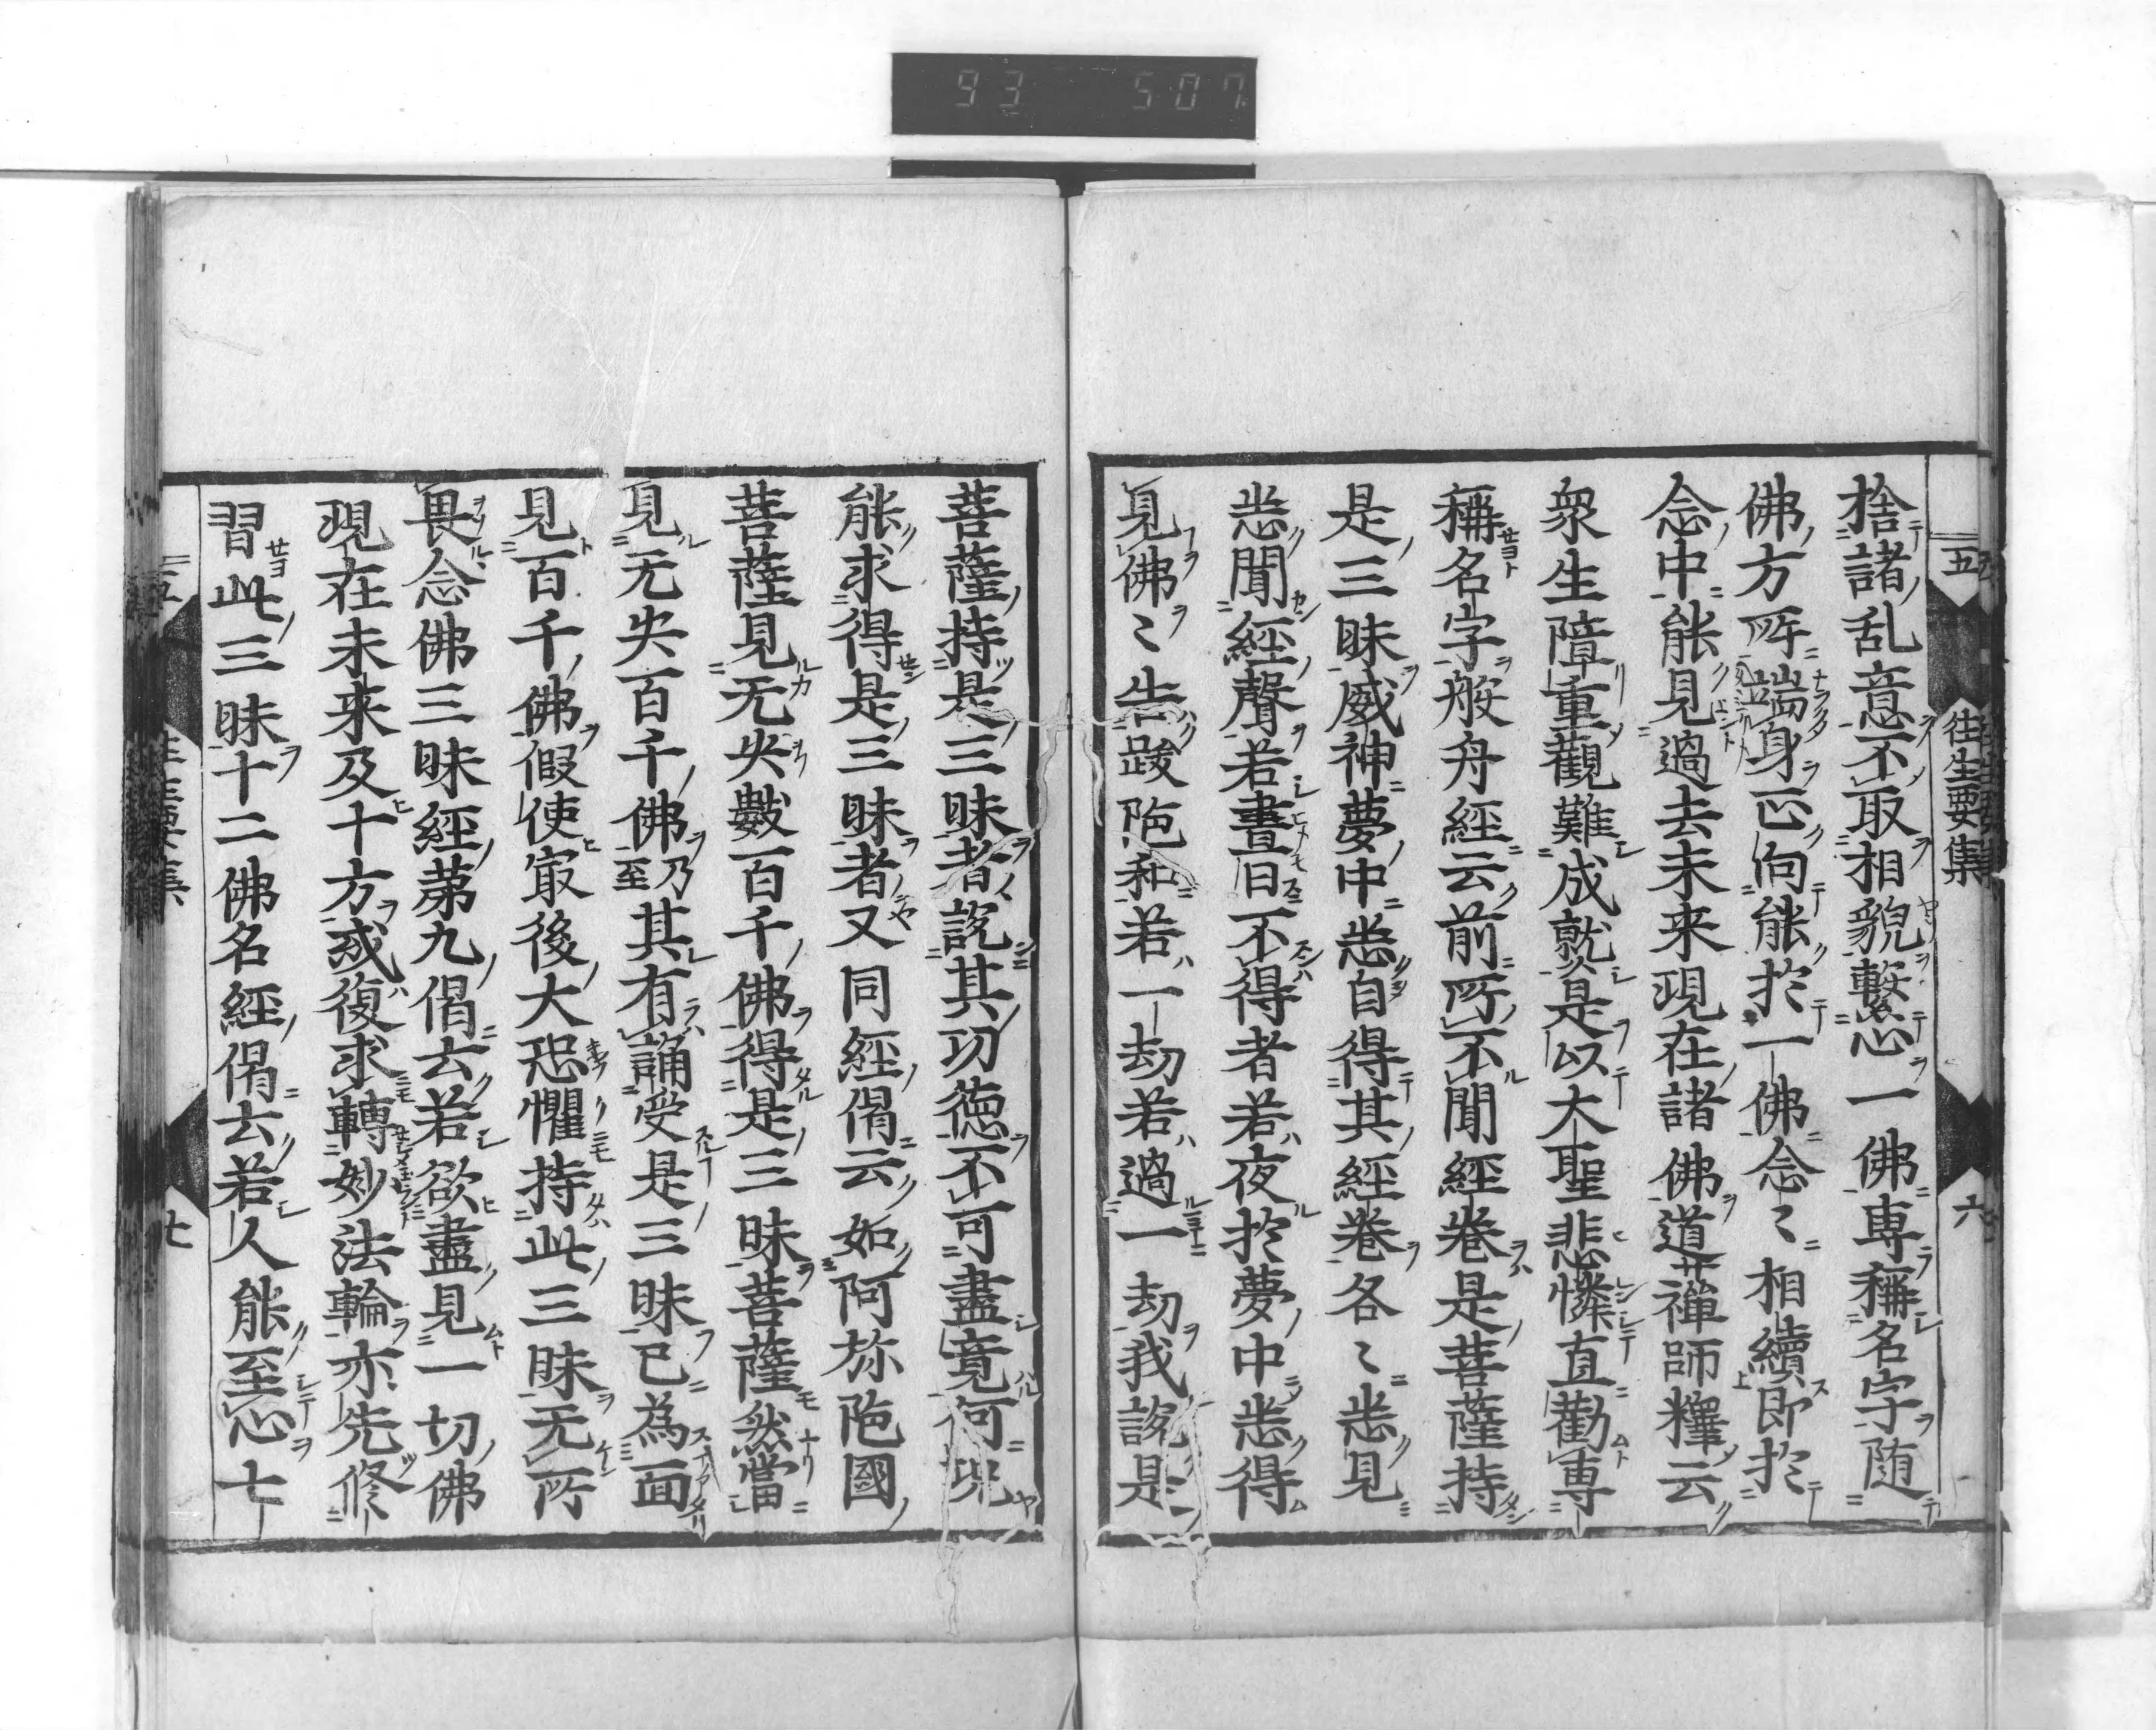 93 507
五
往生要集
六
捨諸乱意不取相貌繫心一佛專稱名字随
佛方所端身正向能於一佛念〻相續即於
念中能見過去未来現在諸佛道禅師釋云
衆生障重觀難成就是以大聖悲憐直勸專
稱名字般舟經云前所不聞經巻是菩薩持
是三昧威神夢中悉自得其經巻各〻悉見
悉聞經聲若晝日不得者若夜於夢中悉得
見佛〻告跋陁和若一劫若過一劫我說是
菩薩持是三昧者說其功徳不可盡竟何况
能求得是三昧者又同經偈云如阿弥陁國
菩薩見无央數百千佛得是三昧菩薩然當
見无央百千佛乃至其有誦受是三昧已為面
見百千佛假使㝡後大恐懼持此三昧无所
畏念佛三昧經第九偈云若欲盡見一切佛
現在未来及十方或復求轉妙法輪亦先修
習此三昧十二佛名經偈云若人能至心七
往生要集
七